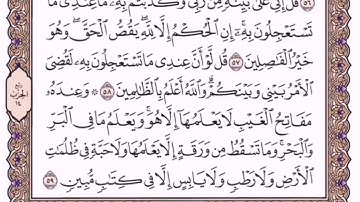 ٥٦ قُلْ إِنِّي عَلَىٰ بَيِّنَةٍ مِّن رَّبِّي وَكَذَّبْتُم بِهِۦ مَا عِندِي مَا
تَسْتَعْجِلُونَ بِهِۦٓ إِنِ ٱلْحُكْمُ إِلَّا لِلَّهِ يَقُصُّ ٱلْحَقَّ وَهُوَ
خَيْرُ ٱلْفَٰصِلِينَ ٥٧ قُل لَّوْ أَنَّ عِندِي مَا تَسْتَعْجِلُونَ بِهِۦ لَقُضِيَ
ٱلْأَمْرُ بَيْنِي وَبَيْنَكُمْ وَٱللَّهُ أَعْلَمُ بِٱلظَّٰلِمِينَ ٥٨ ۞ وَعِندَهُۥ
مَفَاتِحُ ٱلْغَيْبِ لَا يَعْلَمُهَآ إِلَّا هُوَ وَيَعْلَمُ مَا فِي ٱلْبَرِّ
وَٱلْبَحْرِ وَمَا تَسْقُطُ مِن وَرَقَةٍ إِلَّا يَعْلَمُهَا وَلَا حَبَّةٍ فِي ظُلُمَٰتِ
ٱلْأَرْضِ وَلَا رَطْبٍ وَلَا يَابِسٍ إِلَّا فِي كِتَٰبٍ مُّبِينٍ ٥٩
الحزب
١٤